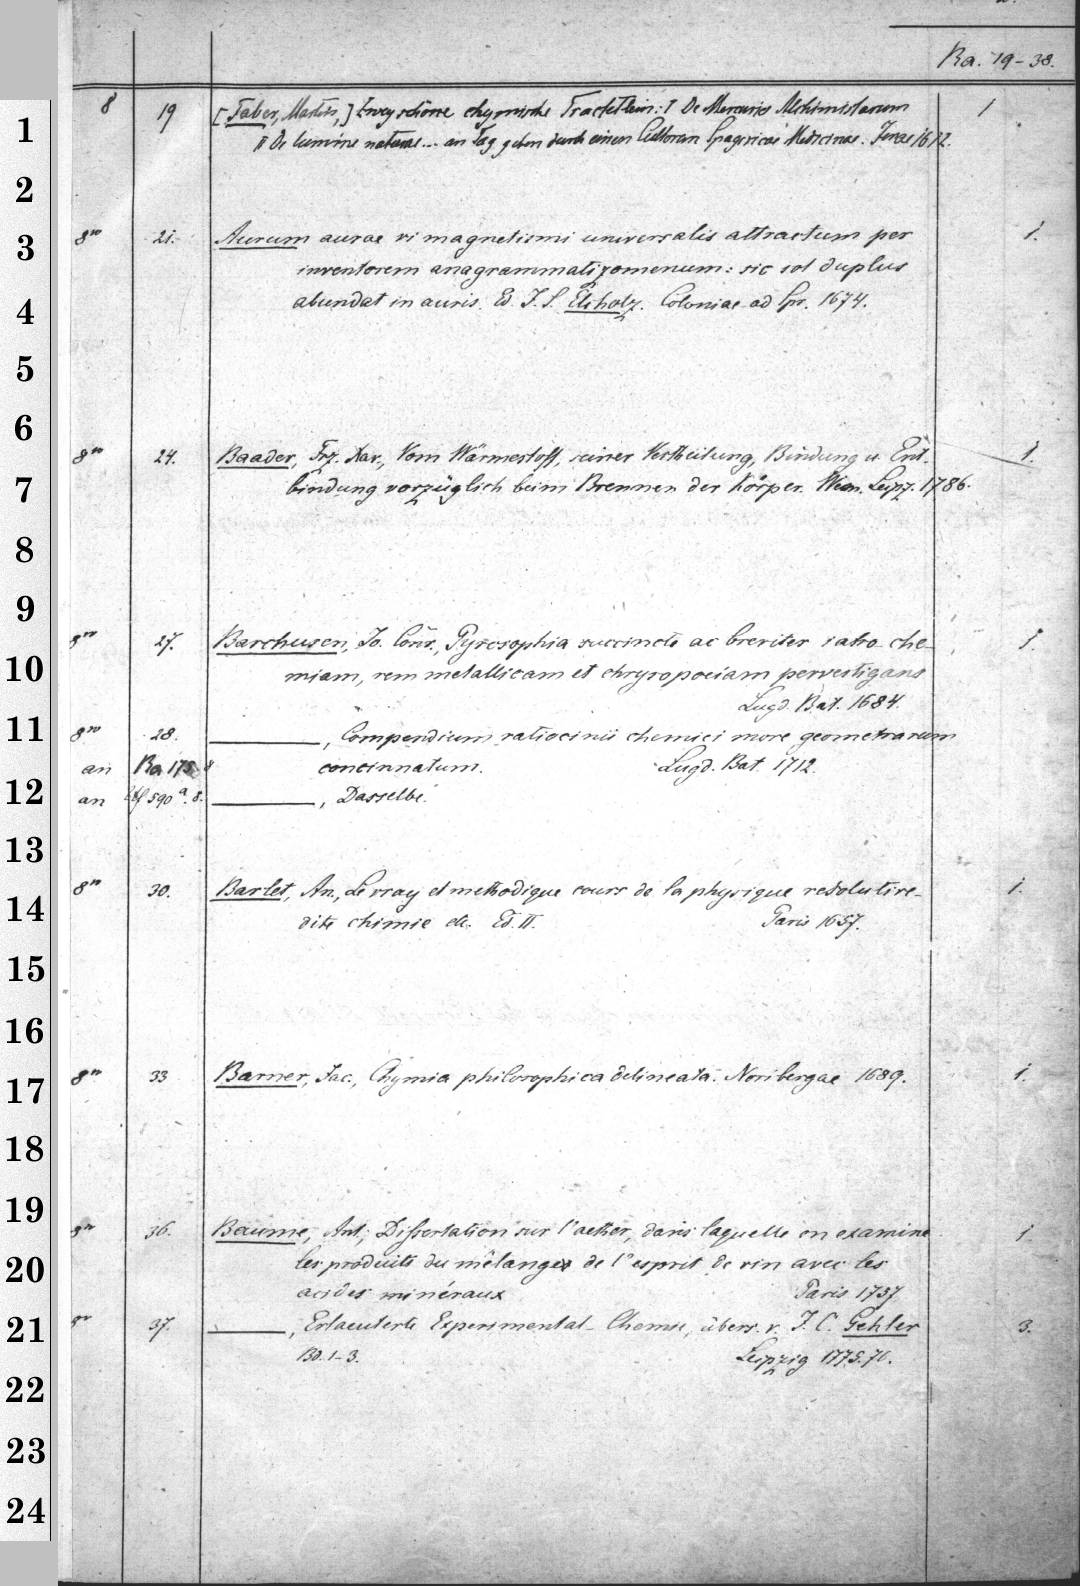 Ra. 19-38.
8 19 [Faber, Martin,] Zwey schöne chymische Tractetlein: I De Mercurio Alchimistarum 1
II De lumine naturae... an Tag geben durch einen Cultorem Spagyricae Medicinae. Jenae 1612.
8vo 21. Aurum aurae vi magnetismi universalis attractum per 1.
inventorem anagrammatizomenum: sic sol duplus
abundat in auris. Ed. J. S. Elsholz. Coloniae ad Spr. 1674.
8vo 24. Baader, Frz. Xav., Vom Wärmestoff, seiner Vertheilung, Bindung u. Ent- 1.
bindung vorzüglich beim Brennen der Körper. Wien. Leipz. 1786.
8vo 27. Barchusen, Jo. Conr., Pyrosophia succincte ac breviter iatro che- 1.
miam, rem metallicam et chrysopoeiam pervestigans
Lugd. Bat. 1684.
8vo 28. ———, Compendium ratiocinii chemici more geometrarum
an Ra 175 8 concinnatum. Lugd. Bat. 1712.
an 590 a. 8. ———, Dasselbe.
8vo 30. Barlet, An., Le vray et methodique cours de la physique resolutive- 1.
dite chimie etc. Ed. II. Paris 1657.
8vo 33 Barner, Jac., Chymia philosophica delineata. Noribergae 1689. 1.
8vo 36. Baume, Ant., Dissertation sur l'aether, dans laquelle on examine 1
les produits du mêlange de l'esprit de vin avec les
acides minéraux Paris 1757
8vo 37. ———, Erlaeuterte Experimental-Chemie, übers. v. J. C. Gehler 3.
Bd. 1-3. Leipzig 1775.76.
1
2
3
4
5
6
7
8
9
10
11
12
13
14
15
16
17
18
19
20
21
22
23
24